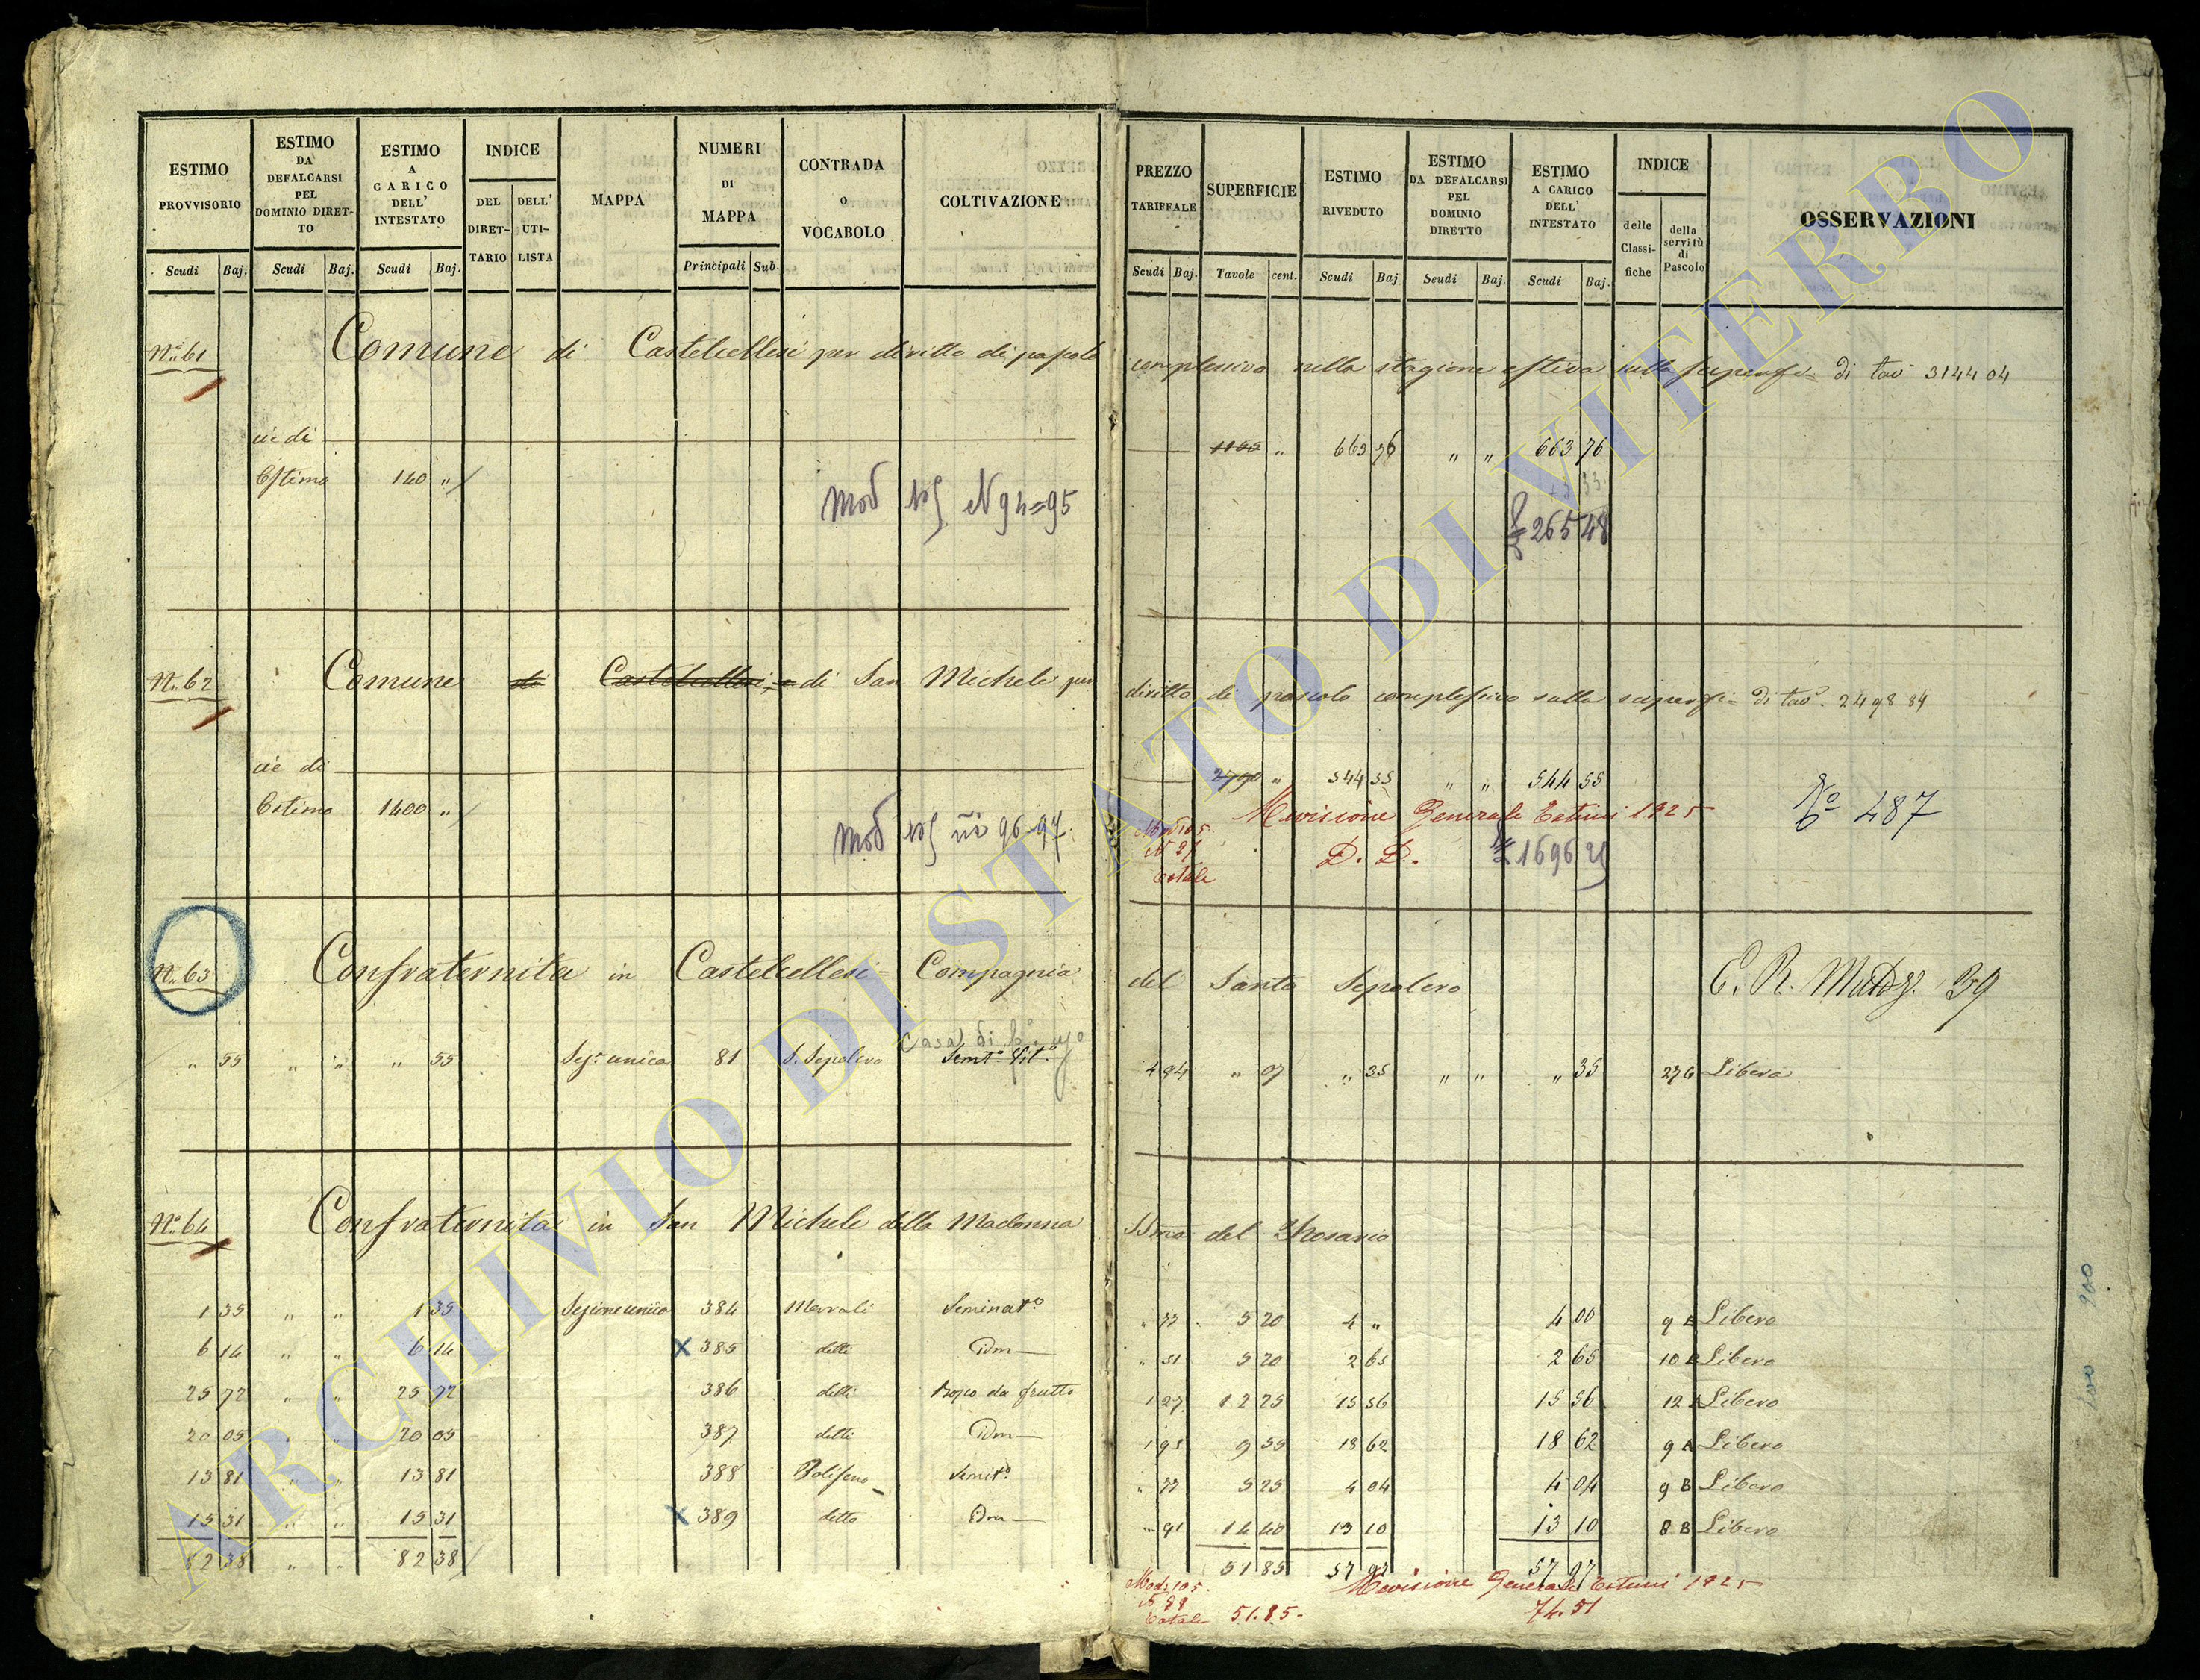 ESTIMO PROVVISORIO
Scudi Baj.
ESTIMO DA DEFALCARSI PEL DOMINIO DIRET-TO
Scudi Baj.
ESTIMO A CARICO DELL' INTESTATO
Scudi Baj.
INDICE
DEL DIRET-TARIO
DELL' UTI-LISTA
MAPPA
NUMERI DI MAPPA
Principali Sub.
CONTRADA O VOCABOLO
COLTIVAZIONE
PREZZO TARIFFALE
Scudi Baj.
SUPERFICIE
Tavole cent.
ESTIMO RIVEDUTO
Scudi Baj
ESTIMO DA DEFALCARSI PEL DOMINIO DIRETTO
Scudi Baj.
ESTIMO A CARICO DELL' INTESTATO
Scudi Baj.
INDICE
delle Classi-fiche
della servitù di Pascolo
OSSERVAZIONI
N.° 61 Comune di Castelcellesi per diritto di pascolo complessivo nella stagione estiva sulla superfi= di tav 3144 04
cie di 1155 " 663 76 " " 663 76
Estimo 140 "
Mod N 94=95
£ 265 48
N.° 62 Comune di Castelcellesi, e di San Michele per diritto di pascolo complessivo sulla superfi= di tav. 2498 84
cie di 2790 " 544 55 " " 544 55
Estimo 1400 "
Revisione Generale Estimi 1925
Mod 105.
Totale
D. D.
1696 21
Mod ni 96-97.
N° 487
N.° 63 Confraternita in Castelcellesi= Compagnia del Santo Sepolcro
E. R. 39
Casa di
" 55 " " " 55 Sez.e unica 81 S. Sepolcro Semt.o Vit.o 4 94 " 07 " 35 " " " 35 27 G Libero
N.° 64 Confraternita in San Michele della Madonna SSma del Rosario
1 35 " " 1 35 Sezione unica 384 Seminat.o " 77 5 20 4 " 4 00 9 B Libero
6 14 " " 6 14 x 385 detti Idm " 51 5 20 2 65 2 65 10 B Libero
25 72 " " 25 72 386 detti Bosco da frutto 1 27 12 25 15 56 15 56 12 A Libero
20 05 " " 20 05 387 detti Idm 1 95 9 55 18 62 18 62 9 A Libero
13 81 " " 13 81 388 Semit.o " 77 5 25 4 04 4 04 9 B Libero
15 31 " " 15 31 x 389 detto Idm " 91 14 40 13 10 13 10 8 B Libero
82 38 " " 82 38 51 85 57 97 57 97
Mod: 105.
N 98
Totale 51.85-
Revisione Generale Estimi 1925
74.51
ARCHIVIO DI STATO DI VITERBO